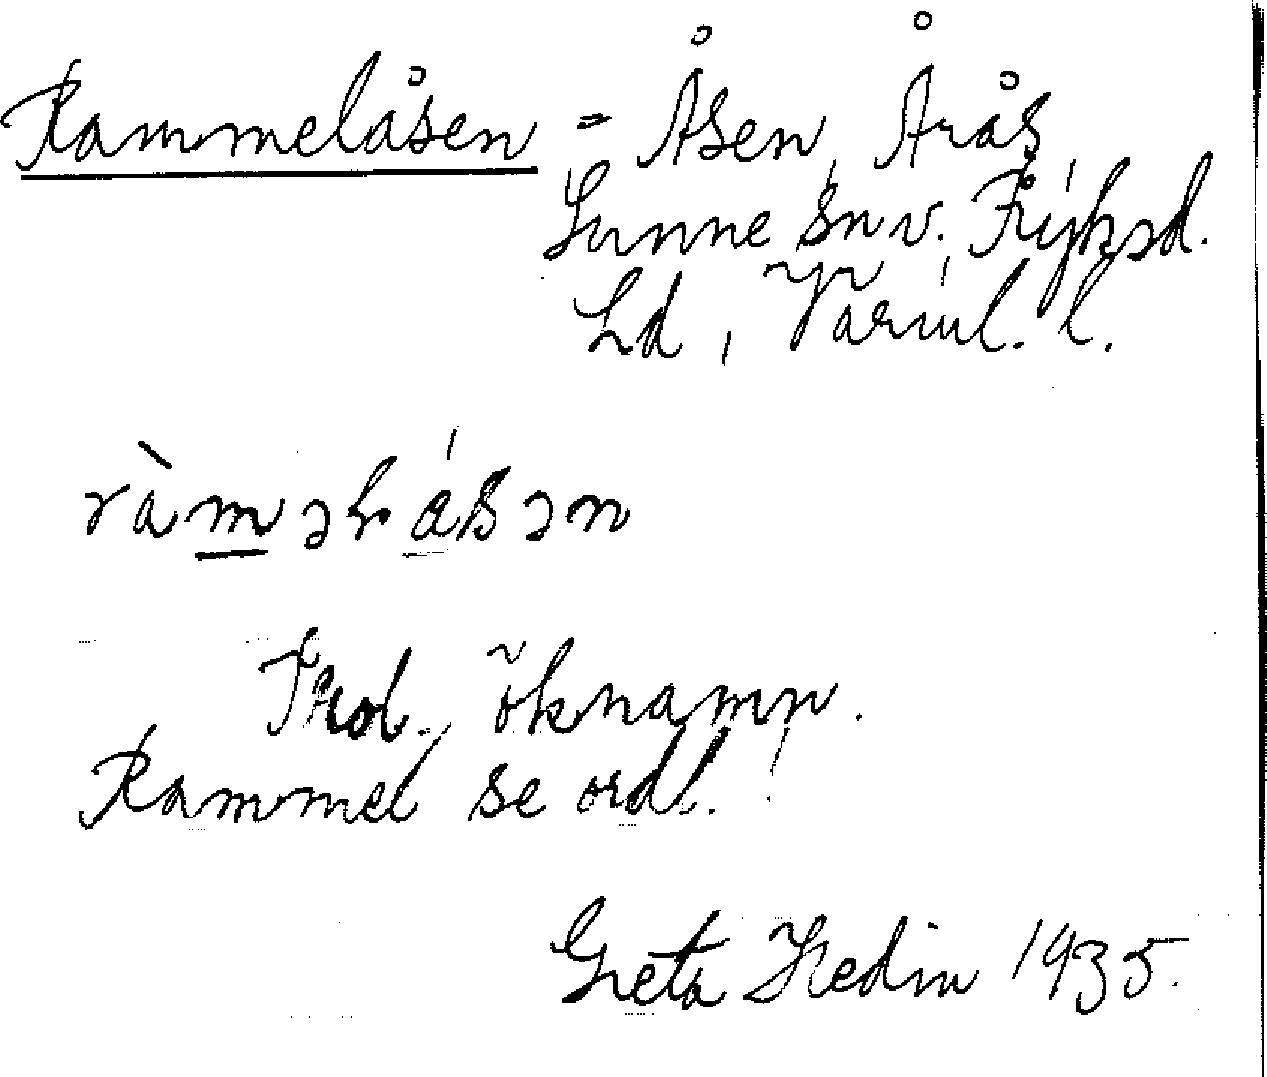 Rammelåsen = Åsen, Årås,
Sunne sn v. Fryksd.
hd, Värml. l.
ràməɫåsən
Trol. öknamn.
Rammel se ordl.
Greta Hedin 1935.